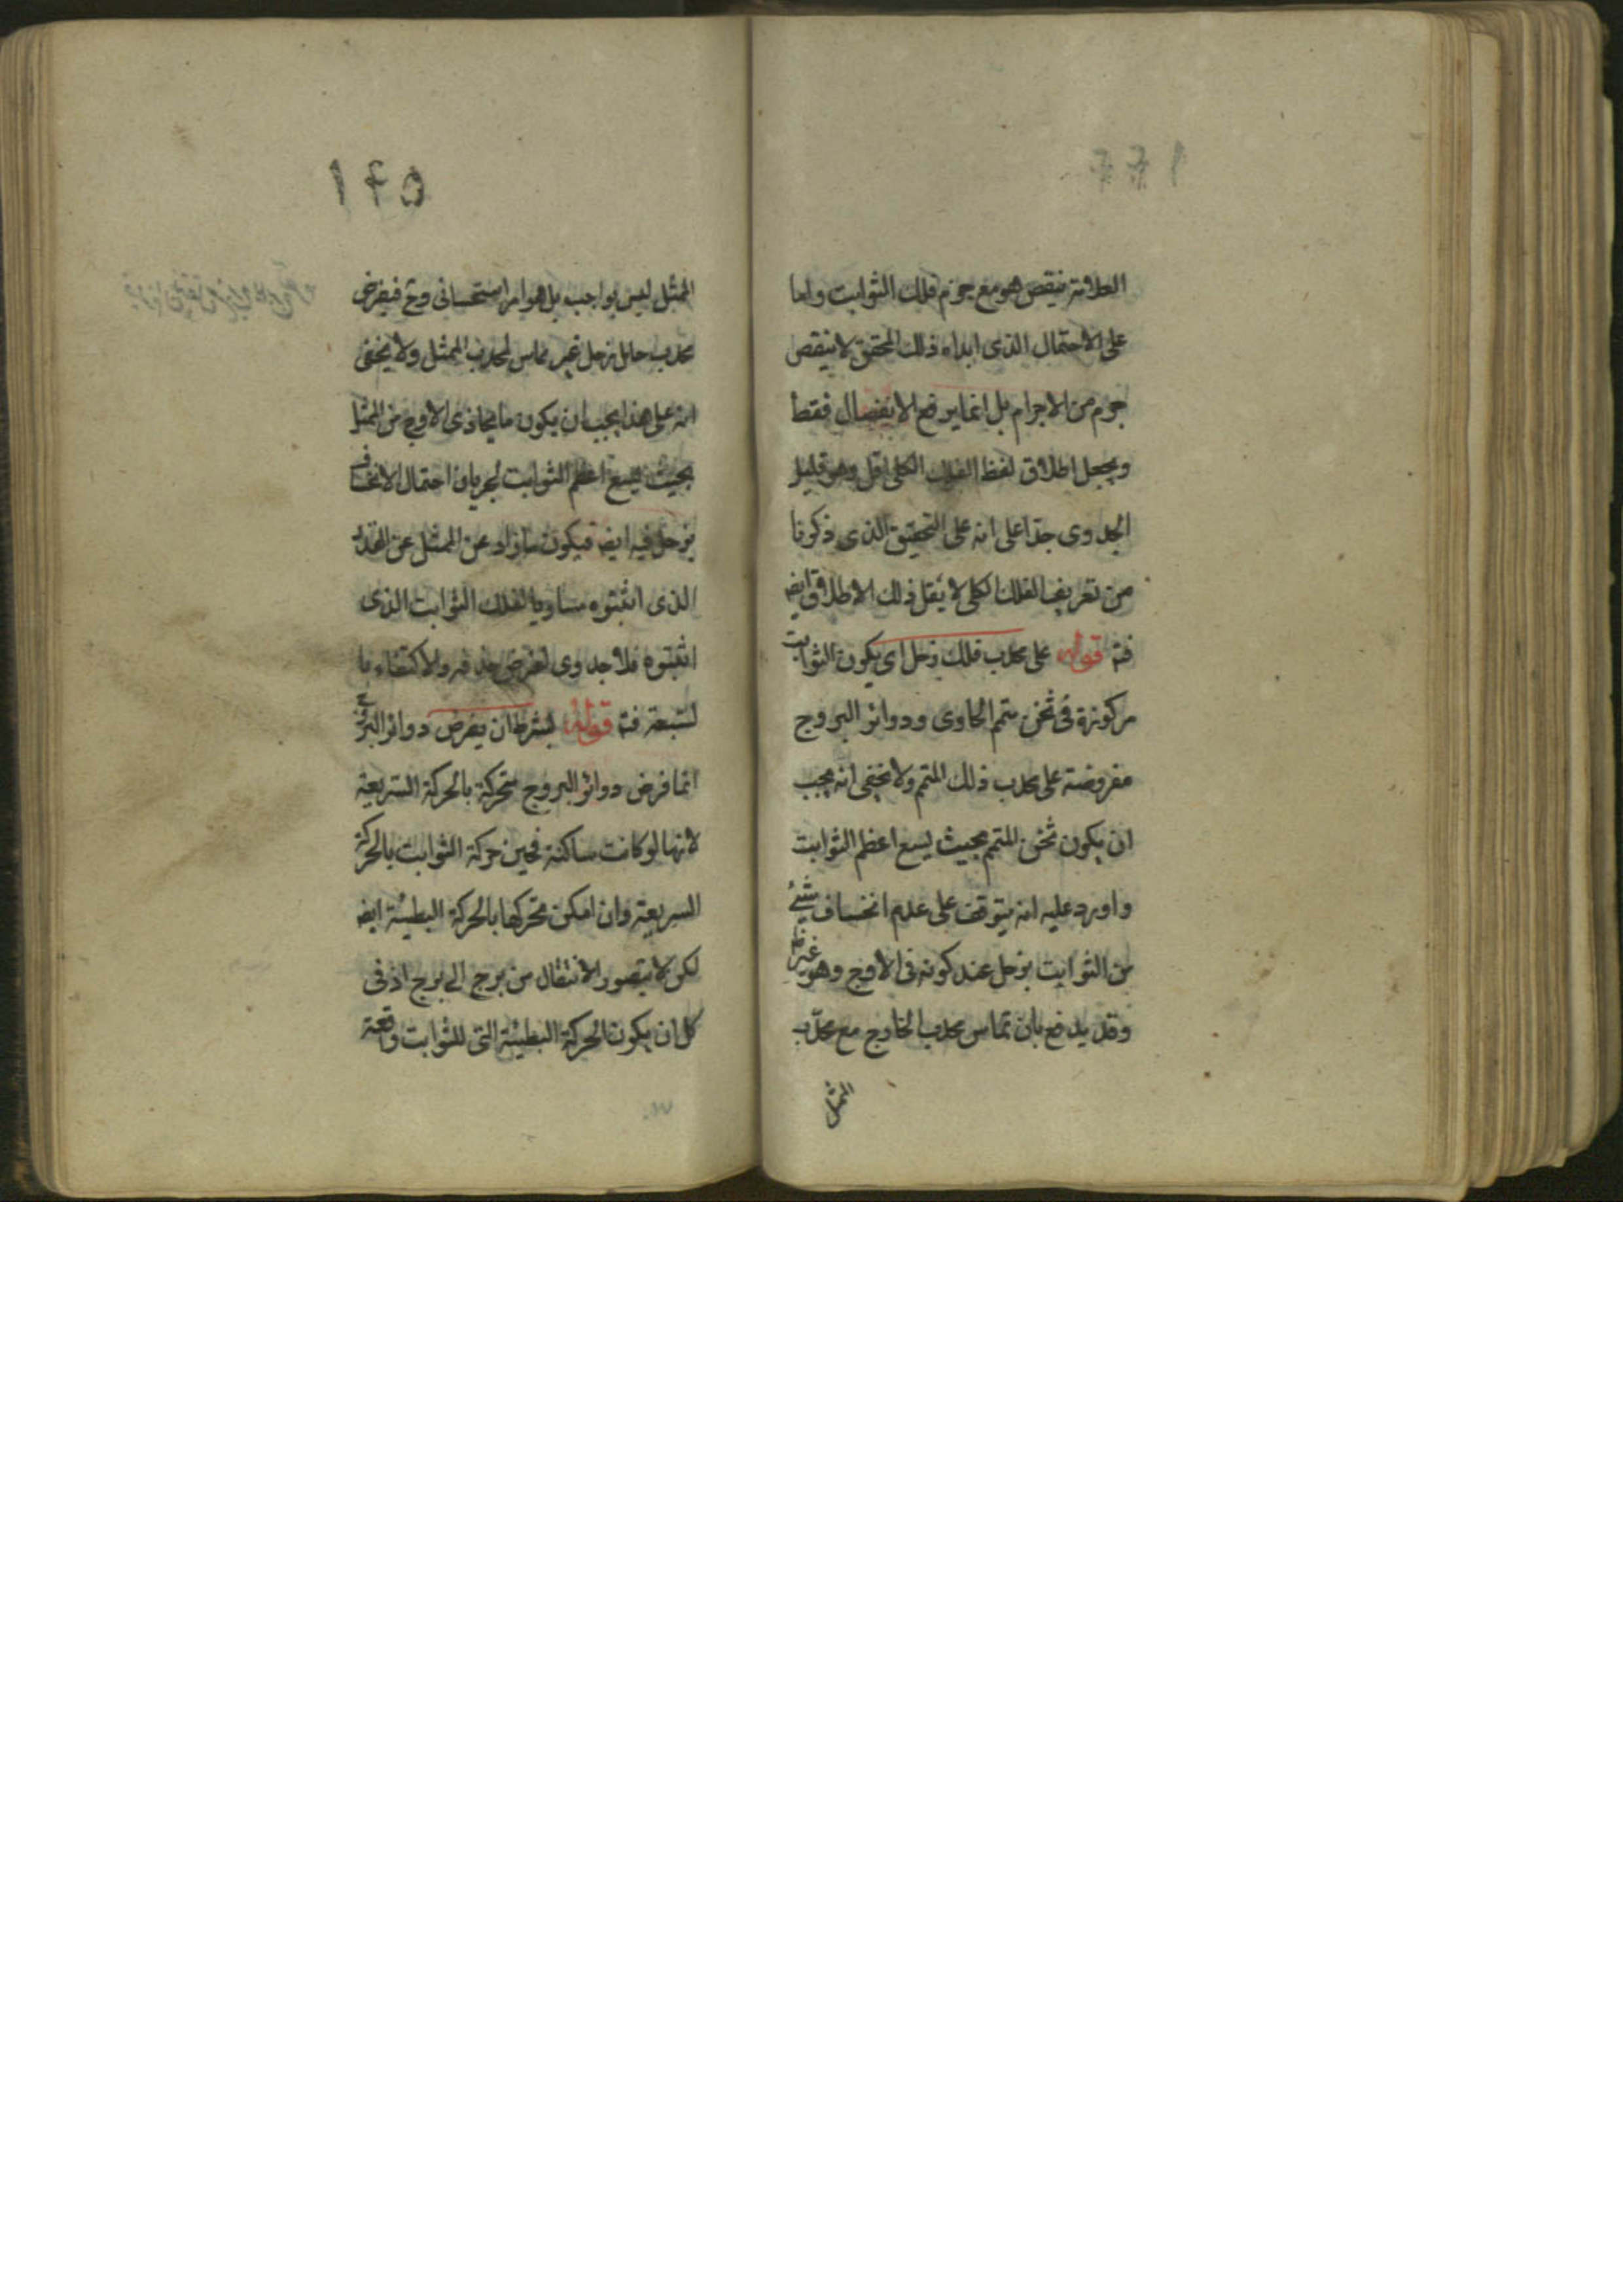 العلامة فينقص هو مع جرم فلك الثوابت واما
على الاحتمال الذى ابداه ذلك المحقق لا ينقص
جرم من الاجرام بل انما يرفع الانفصال فقط
ويجعل اطلاق لفظ الفلك الكلى اقل وهو قليل
الجدوى جدا على انه على التحقيق الذى ذكرنا
من تعريف الفلك الكلى لا يقل ذلك الاطلاق ايضا
فتم قوله على محدب فلك زحل اى يكون الثوابت
مركوزة فى ثخن متمم الحاوى ودوائر البروج
مفروضة على محدب ذلك المتمم ولا يخفى انه يجب
ان يكون ثخن المتمم بحيث يسع اعظم الثوابت
واورد عليه انه يتوقف على عدم انخساف شئ
من الثوابت بزحل عند كونه فى الاوج وهو غير
وقد يدفع بان تماس محدب الخارج مع محدب
الممثل
١٤٥
الممثل ليس بواجب بل هو امر استحسانى وح فيفرض
محدب حامل زحل غير مماس لمحدب الممثل ولا يخفى
انه على هذا يجب ان يكون ما يحاذى الاوج من الممثل
بحيث يسع اعظم الثوابت لجريان احتمال الانخساف
بزحل فيه ايضا فيكون ما زاد عن الممثل عن القدر
الذى اثبتوه مساويا لفلك الثوابت الذى
اثبتوه فلا جدوى لفرض حذفه والاكتفاء با
لسبعة فتم قوله بشرط ان يفرض دوائر البروج
انما فرض دوائر البروج متحركة بالحركة السريعة
لانها لو كانت ساكنة فحين حركة الثوابت بالحركة
السريعة وان امكن تحركها بالحركة البطيئة ايضا
لكن لا يتصور الانتقال من برج الى برج اذ فى
كل ان يكون الحركة البطيئة التى للثوابت واقعة